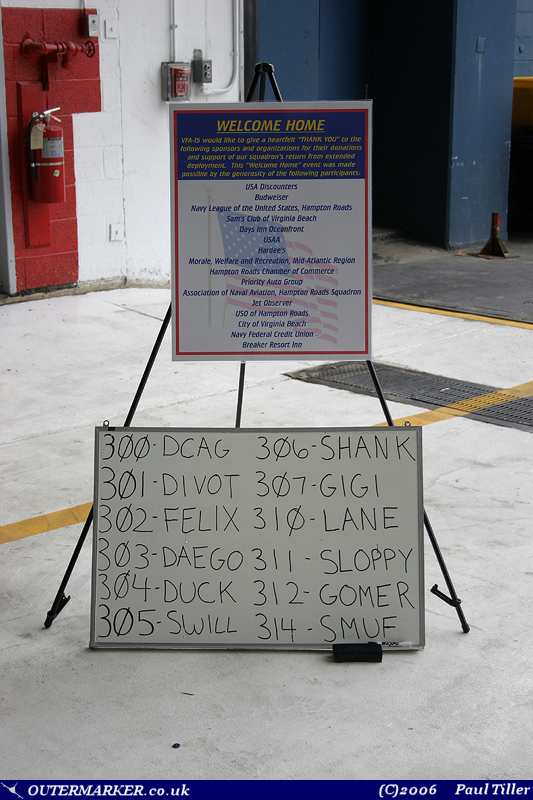 WELCOME HOME
VFA-15 would like to give a heartfelt "THANK YOU" to the
following sponsors and organizations for their donations
and support of our squadron's return from extended
deployment. This "Welcome Home" event was made
possible by the generosity of the following participants:
USA Discounters
Budweiser
Navy League of the United States, Hampton Roads
Sam's Club of Virginia Beach
Days Inn Oceanfront
USAA
Hardee's
Morale, Welfare and Recreation, Mid-Atlantic Region
Hampton Roads Chamber of Commerce
Priority Auto Group
Association of Naval Aviation, Hampton Roads Squadron
Jet Observer
USO of Hampton Roads
City of Virginia Beach
Navy Federal Credit Union
Breaker Resort Inn
300-DCAG 306-SHANK
301-DIVOT 307-GIGI
302-FELIX 310-LANE
303-DAEGO 311-SLOPPY
304-DUCK 312-GOMER
305-SWILL 314-SMUF
OUTERMARKER.co.uk (C)2006 Paul Tiller